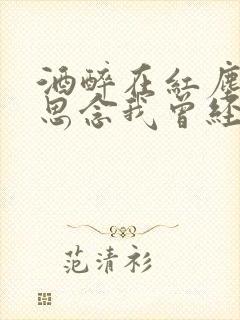 酒醉在紅塵
思念我曾經
范清衫